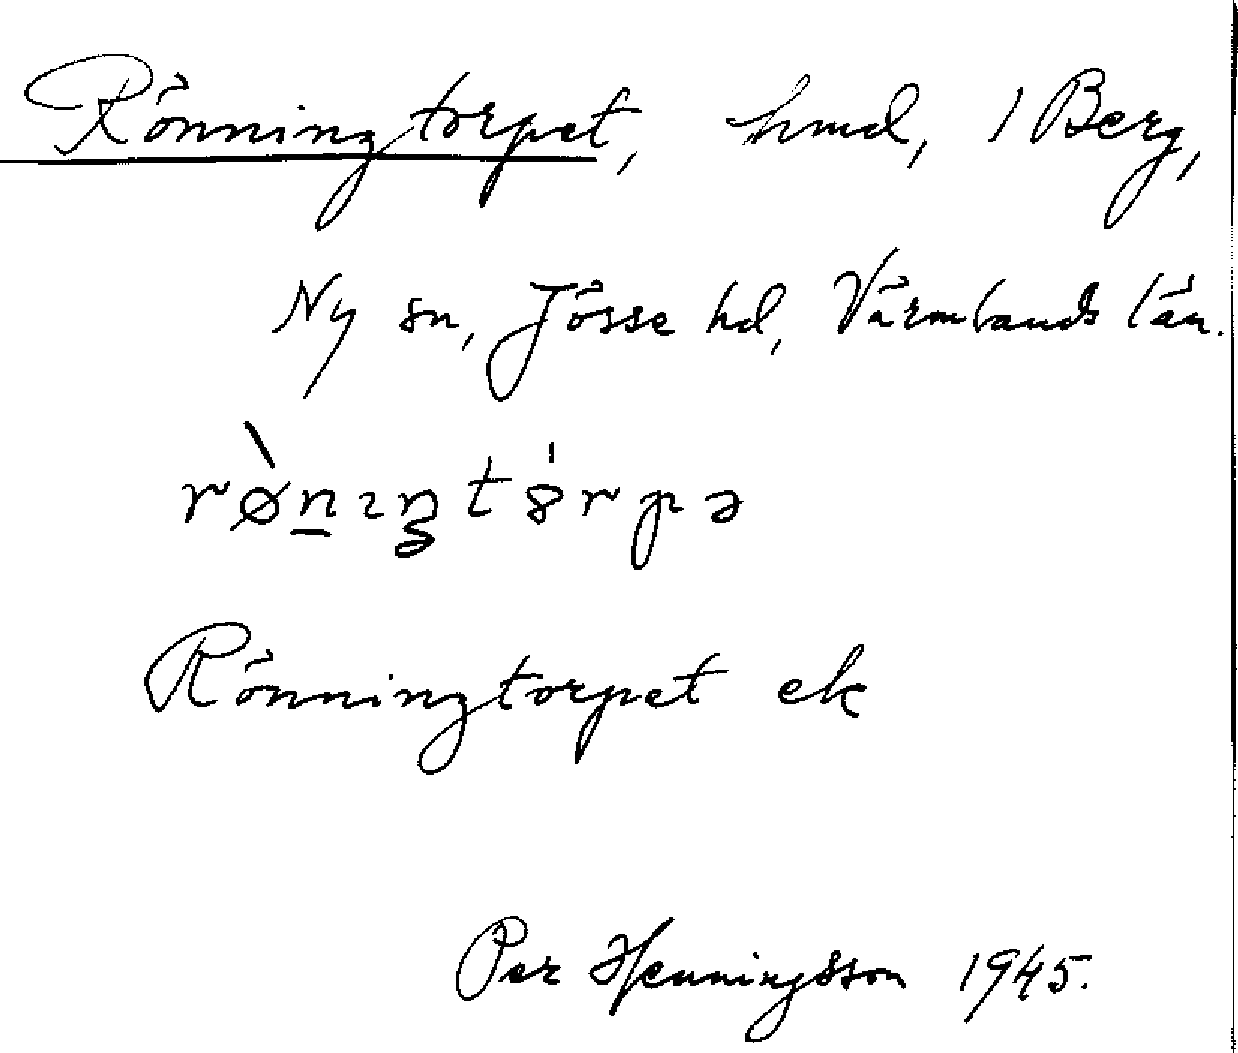 Rönningtorpet, hmd, 1 Berg,
Ny sn, Jösse hd, Värmlands län.
Rönningtorpet ek
Per Henningsson 1945.